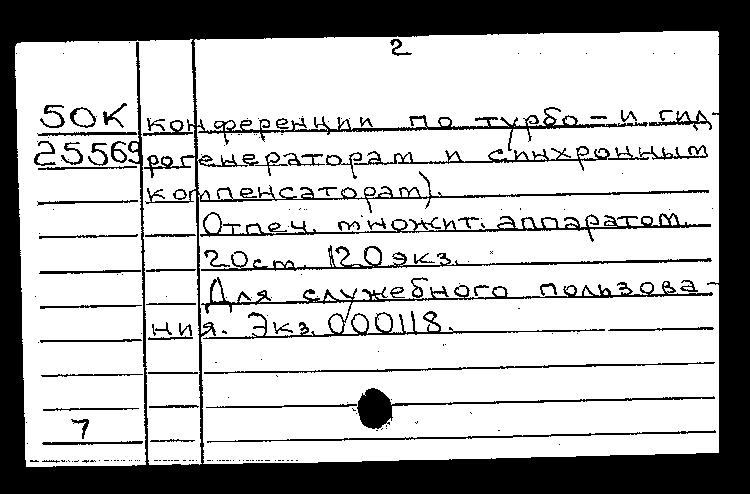 2
50К конференции по турбо- и гид-
25569 рогенераторам и синхронным
компенсаторам).
Отпеч. множит. аппаратом.
20см. 120 экз.
Для служебного пользова-
ния. Экз. 000118.
7